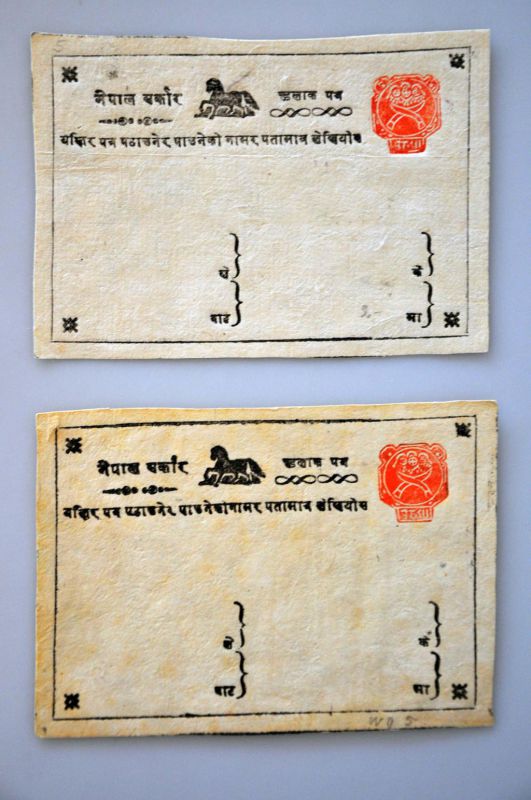 नेपाल सर्कार
हुलाक पत्र
यस्तिर पत्र पठाउनेर पाउनेको नामर पतामात्र लेखियोस
बाट
मा
2.-
5
नेपाल सर्कार
हुलाक पत्र
यस्तिर पत्र पठाउनेर पाउनेको नामर पतामात्र लेखियोस
बाट
मा
W G 5